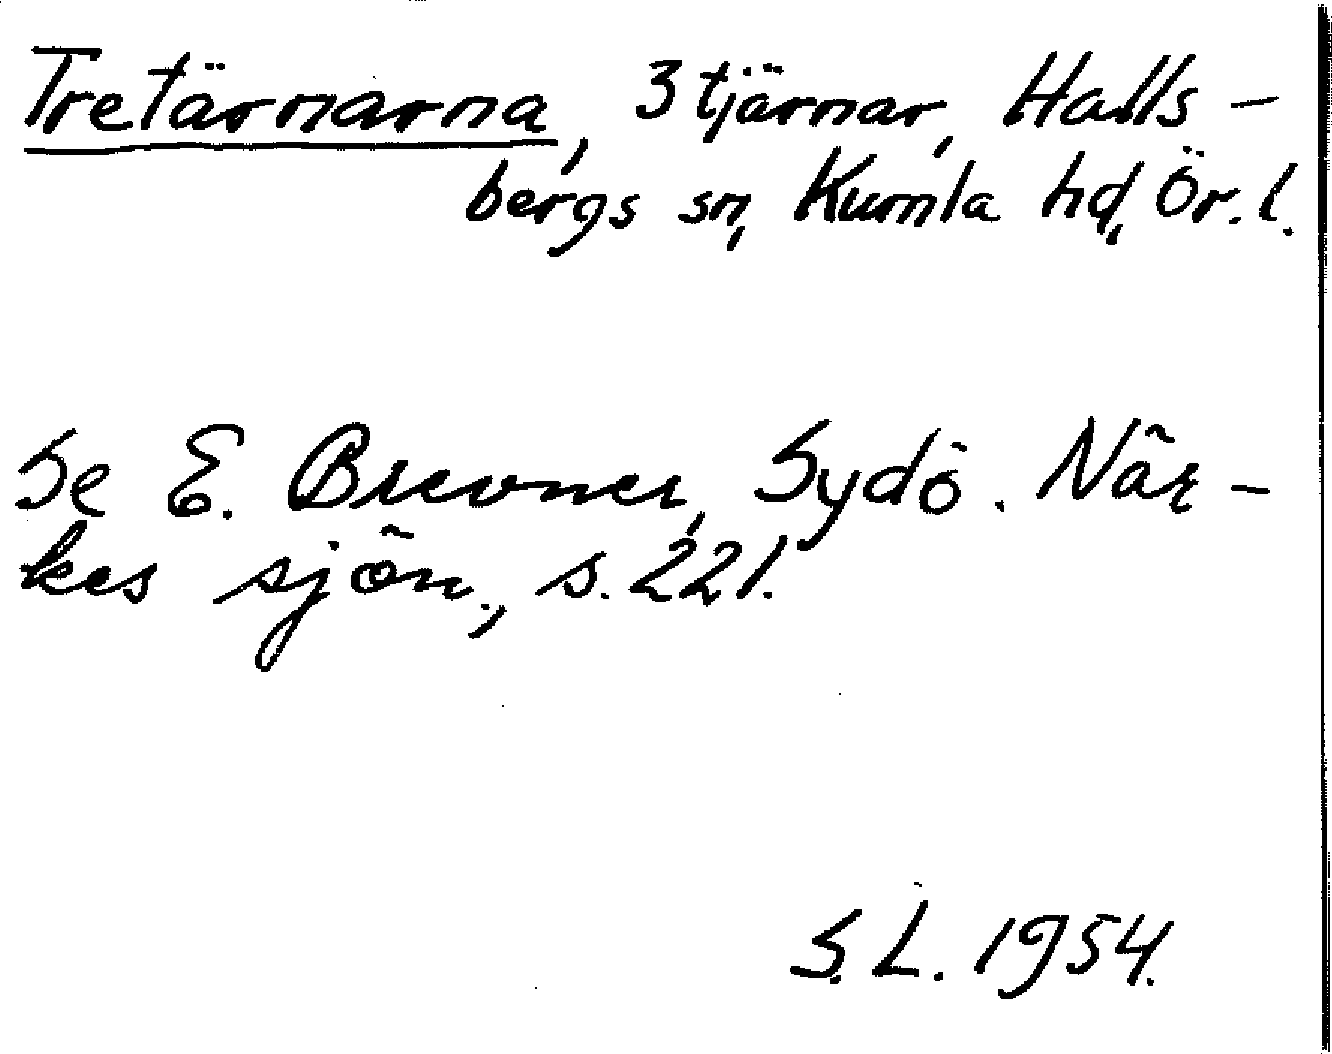 Tretärnarna, 3 tjärnar, Halls-
bergs sn, Kumla hd, Ör. l.
Se E. Brevner, Sydö. När-
kes sjön., s. 221.
S. L. 1954.